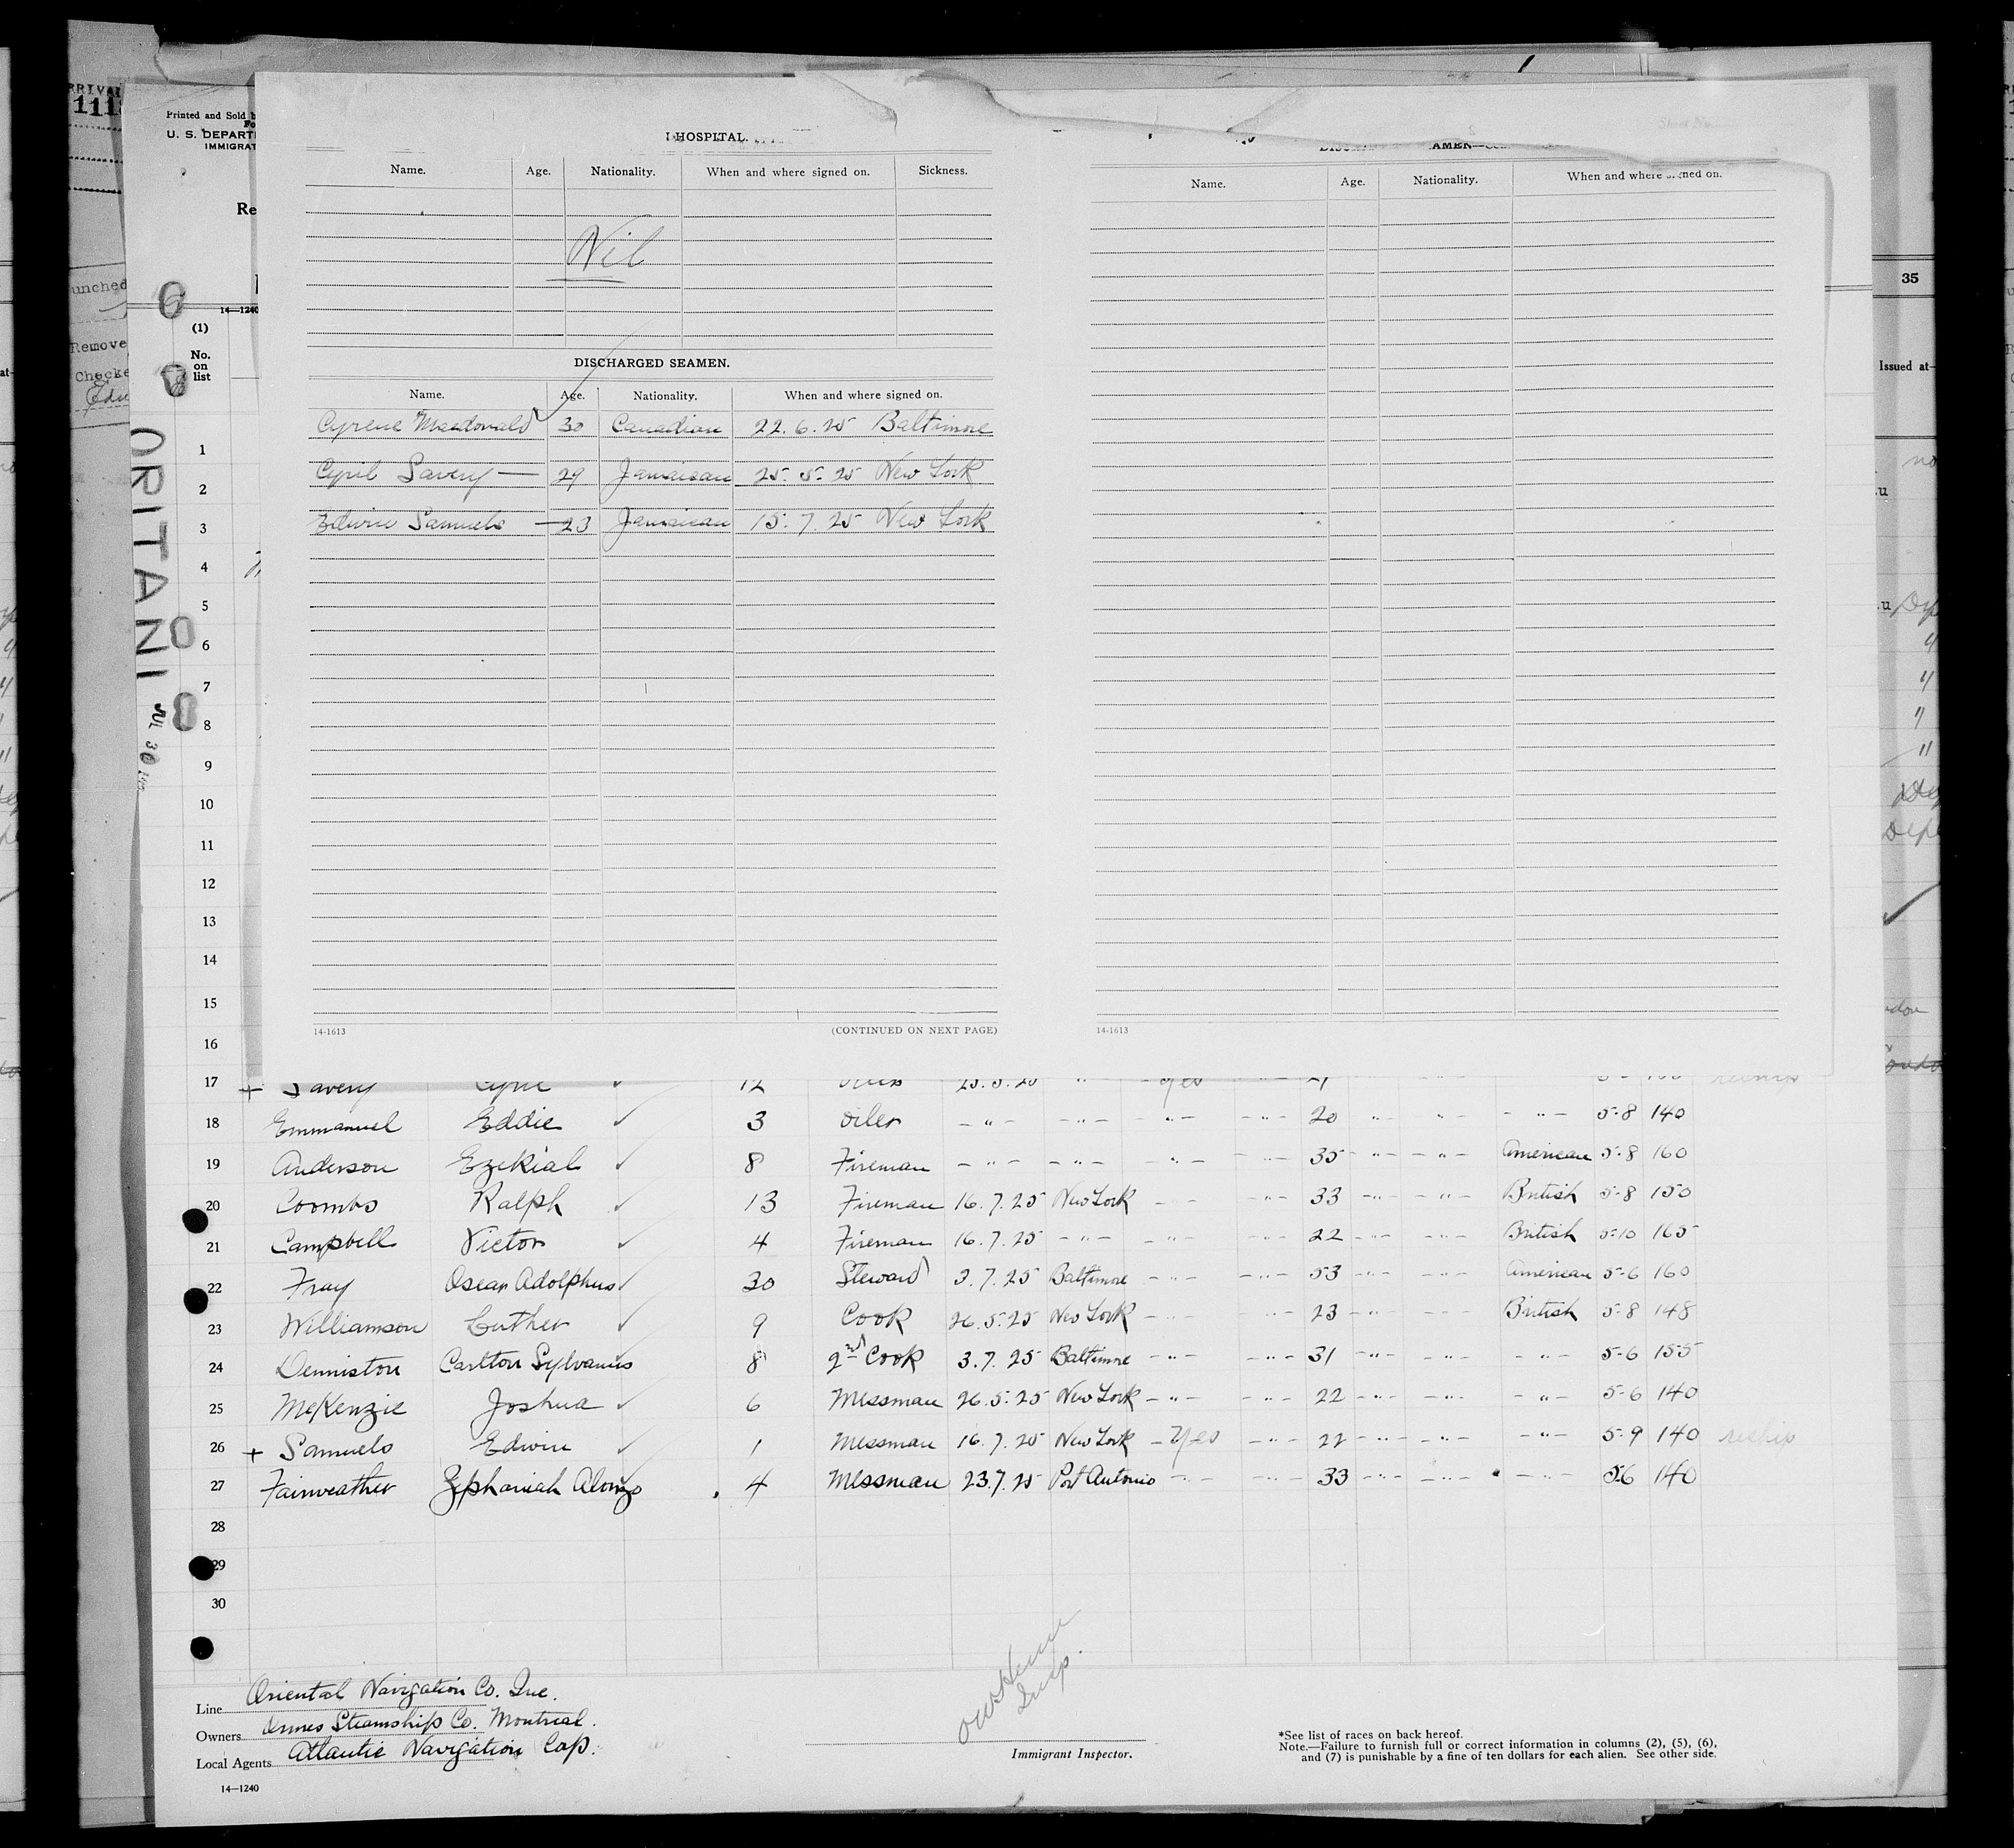 1
RRIVA
111
Printed and Sold
U. S. DEPART
IMMIGRAT
Re
unched
Remove
Checke
14—1240
(1)
No. on list
ORITANI
35
Issued at—
HOSPITAL.
Name. Age. Nationality. When and where signed on. Sickness.
Nil
DISCHARGED SEAMEN.
Name. Age. Nationality. When and where signed on.
Cyrene Macdonald 30 Canadian 22.6.25 Baltimore
Cyril Savery — 29 Jamaican 25.5.25 New York
Edwin Samuels — 23 Jamaican 15.7.25 New York
14-1613 (CONTINUED ON NEXT PAGE)
AMEN—
Name. Age. Nationality. When and where signed on.
14-1613
1
2
3
4
5
6
7
8
9
10
11
12
13
14
15
16
17 + Savery Cyril ✓ 12 25.5.25 Yes
18 Emmanuel Eddie ✓ 3 Oiler –"– –"– –"– –"– 20 –"– –"– –"– 5-8 140
19 Anderson Ezekial ✓ 8 Fireman –"– –"– –"– –"– 35 –"– –"– American 5-8 160
20 Coombs Ralph ✓ 13 Fireman 16.7.25 New York –"– –"– 33 –"– –"– British 5-8 150
21 Campbell Victor ✓ 4 Fireman 16.7.25 –"– –"– –"– 22 –"– –"– British 5-10 165
22 Fray Oscar Adolphus ✓ 30 Steward 3.7.25 Baltimore –"– –"– 53 –"– –"– American 5-6 160
23 Williamson Luther ✓ 9 Cook 26.5.25 New York –"– –"– 23 –"– –"– British 5-8 148
24 Denniston Carlton Sylvanus 8 2nd Cook 3.7.25 Baltimore –"– –"– 31 –"– –"– –"– 5-6 155
25 McKenzie Joshua ✓ 6 Messman 26.5.25 New York –"– –"– 22 –"– –"– –"– 5-6 140
26 + Samuels Edwin ✓ 1 Messman 16.7.25 New York – Yes –"– 22 –"– –"– –"– 5-9 140 reship
27 Fairweather Zephaniah Alonzo 4 Messman 23.7.25 Port Antonio –"– –"– 33 –"– –"– –"– 5-6 140
28
29
30
Line Oriental Navigation Co. Inc.
Owners Steamship Co. Montreal.
Local Agents Atlantic Navigation Cop.
Insp.
Immigrant Inspector.
*See list of races on back hereof.
Note.—Failure to furnish full or correct information in columns (2), (5), (6),
and (7) is punishable by a fine of ten dollars for each alien. See other side.
14—1240